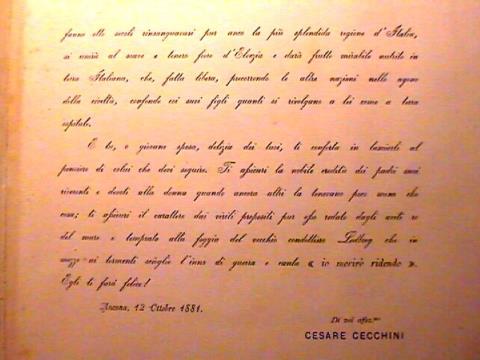 fanno otto secoli rinsanguavasi pur anco la più splendida regione d'Italia,
si unirà al soave e tenero fiore d'Elvezia e darà frutto mirabile nutrito in
terra Italiana, che, fatta libera, precorrendo le altre nazioni nello agone
della civiltà, confonde coi suoi figli quanti si rivolgano a lei come a terra
ospitale.
E tu, o giovane sposa, delizia dei tuoi, ti conforta in lasciarli al
pensiero di colui che devi seguire. Ti assicuri la nobile eredità dei padri suoi
riverenti e devoti alla donna quando ancora altri la tenevano poco meno che
cosa; ti assicuri il carattere dai virili propositi per esso redato dagli aviti re
del mare e temprato alla foggia del vecchio condottiero Lodbrog che in
mezzo ai tormenti scioglie l'inno di guerra e canta « io morirò ridendo ».
Egli ti farà felice!
Ancona, 12 Ottobre 1881.
Di voi affez.mo
CESARE CECCHINI